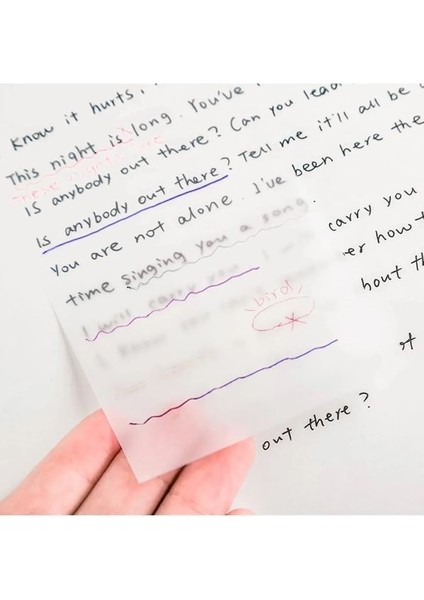 Know it hurts,
This night is long. You've
Is anybody out there? Can you lead
Is anybody out there? Tell me it'll all be
You are not alone. I've been here the
time singing you a song.
I will carry you carry you
er how t
bird
hout th
out there?